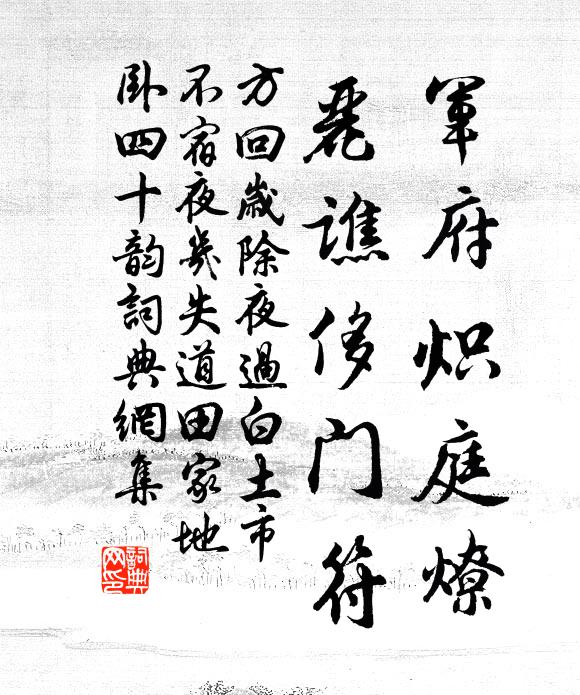 軍府炽庭燎
麗譙侈門符
方回歲除夜過白土市
不宿夜幾失道田家地
卧四十韵詞典網集
詞典网印